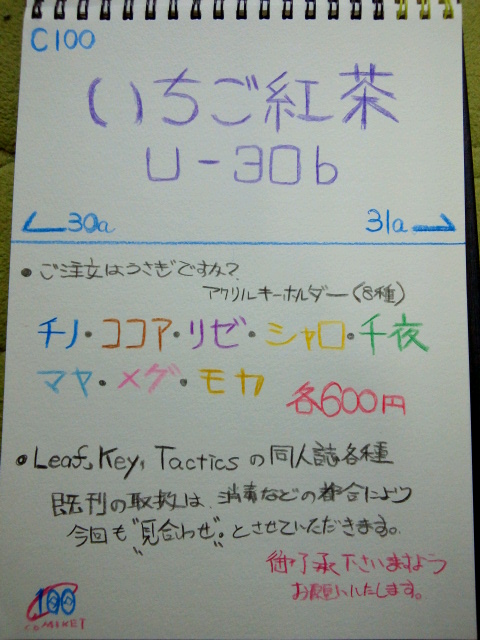 C100
いちご紅茶
U-30b
30a
31a
● ご注文はうさぎですか?
アクリルキーホルダー(8種)
チノ・ココア・リゼ・シャロ・千夜
マヤ・メグ・モカ
各600円
● Leaf, Key, Tacticsの同人誌各種
既刊の取扱は、消毒などの都合により
今回も"見合わせ"とさせていただきます。
御了承下さいますよう
お願いいたします。
100
COMIKET